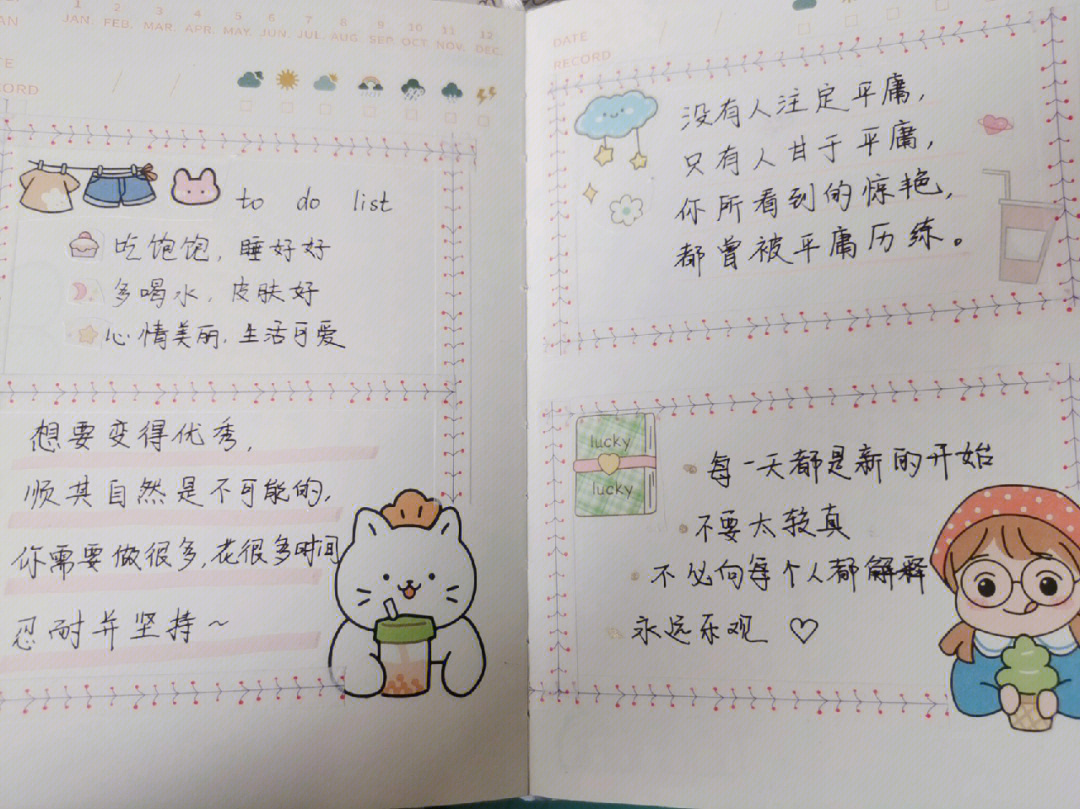 1 2 3 4 5 6 7 8 9 10 11 12
JAN. FEB. MAR. APR. MAY. JUN. JUL. AUG. SEP. OCT. NOV. DEC.
to do list
吃饱饱，睡好好
多喝水，皮肤好
心情美丽，生活可爱
想要变得优秀，
顺其自然是不可能的，
你需要做很多，花很多时间
忍耐并坚持~
DATE
RECORD
没有人注定平庸，
只有人甘于平庸，
你所看到的惊艳，
都曾被平庸历练。
lucky
lucky
每一天都是新的开始
不要太较真
不必向每个人都解释
永远乐观 ♡